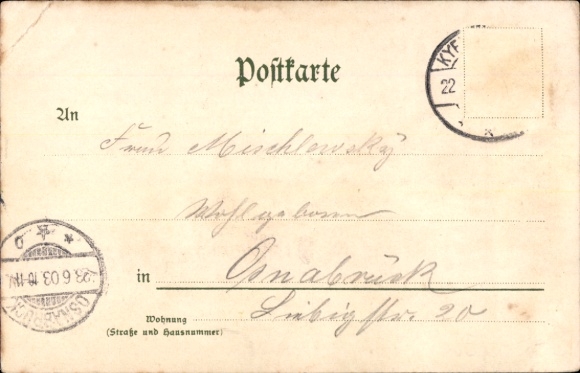 Postkarte
KYF
22
An
Frau Mischlowsky
Wohlgeboren
in Osnabrück
Liebigstr. 20
Wohnung
(Straße und Hausnummer)
OSNABRÜCK
23.6.03